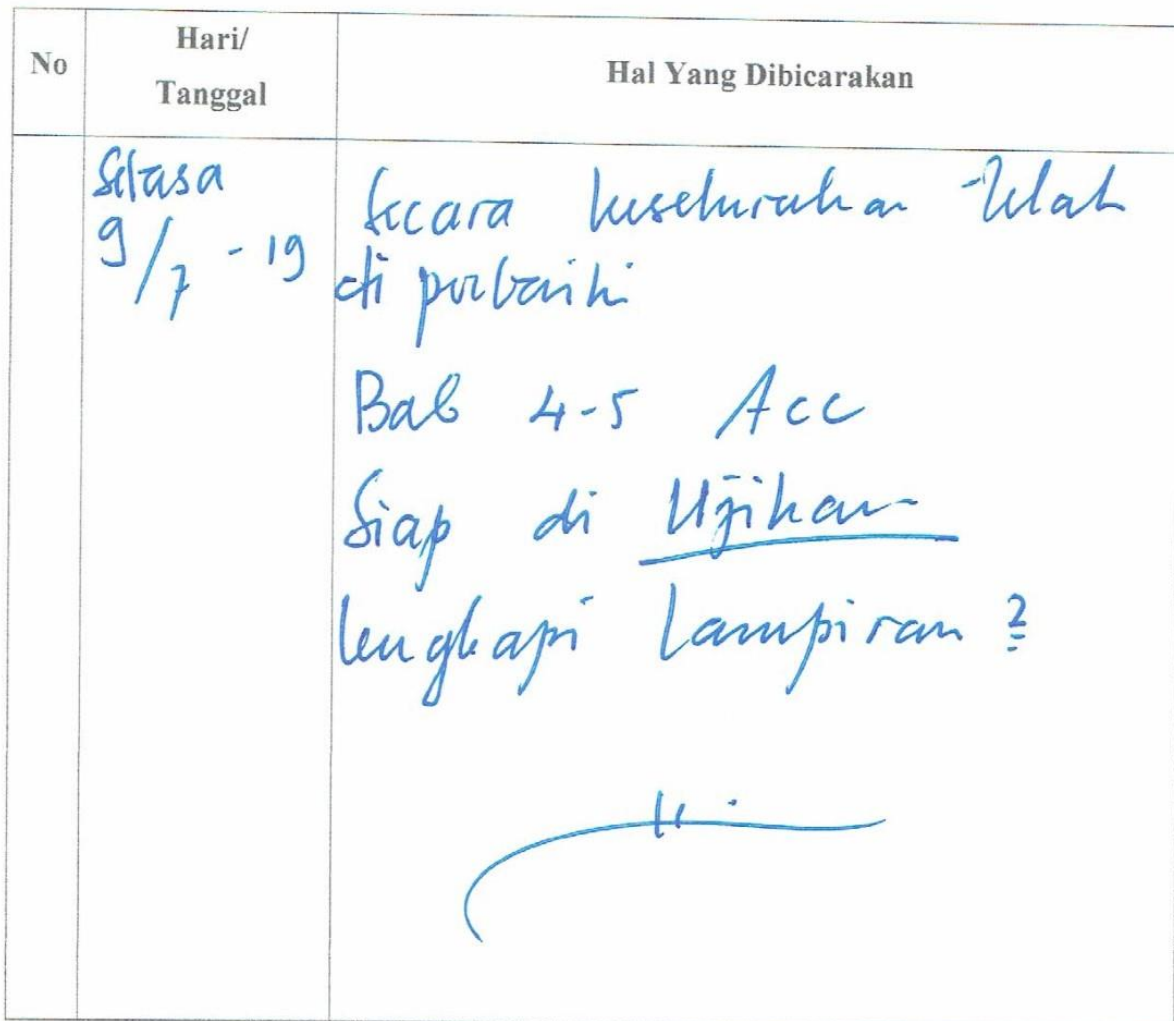 No
Hari/
Tanggal
Hal Yang Dibicarakan
Selasa
9/7 - 19
Secara keseluruhan telah
di perbaiki
Bab 4-5 Acc
Siap di Ujikan
lengkapi Lampiran ?